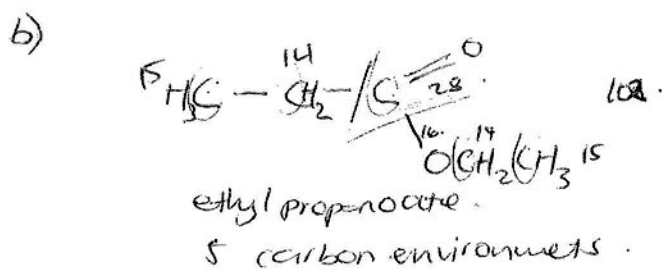 b)
14 O
15 H3C — CH2 — C 28. 102.
16. 14
OCH2CH3 15
ethyl propanoate.
5 carbon environmets.